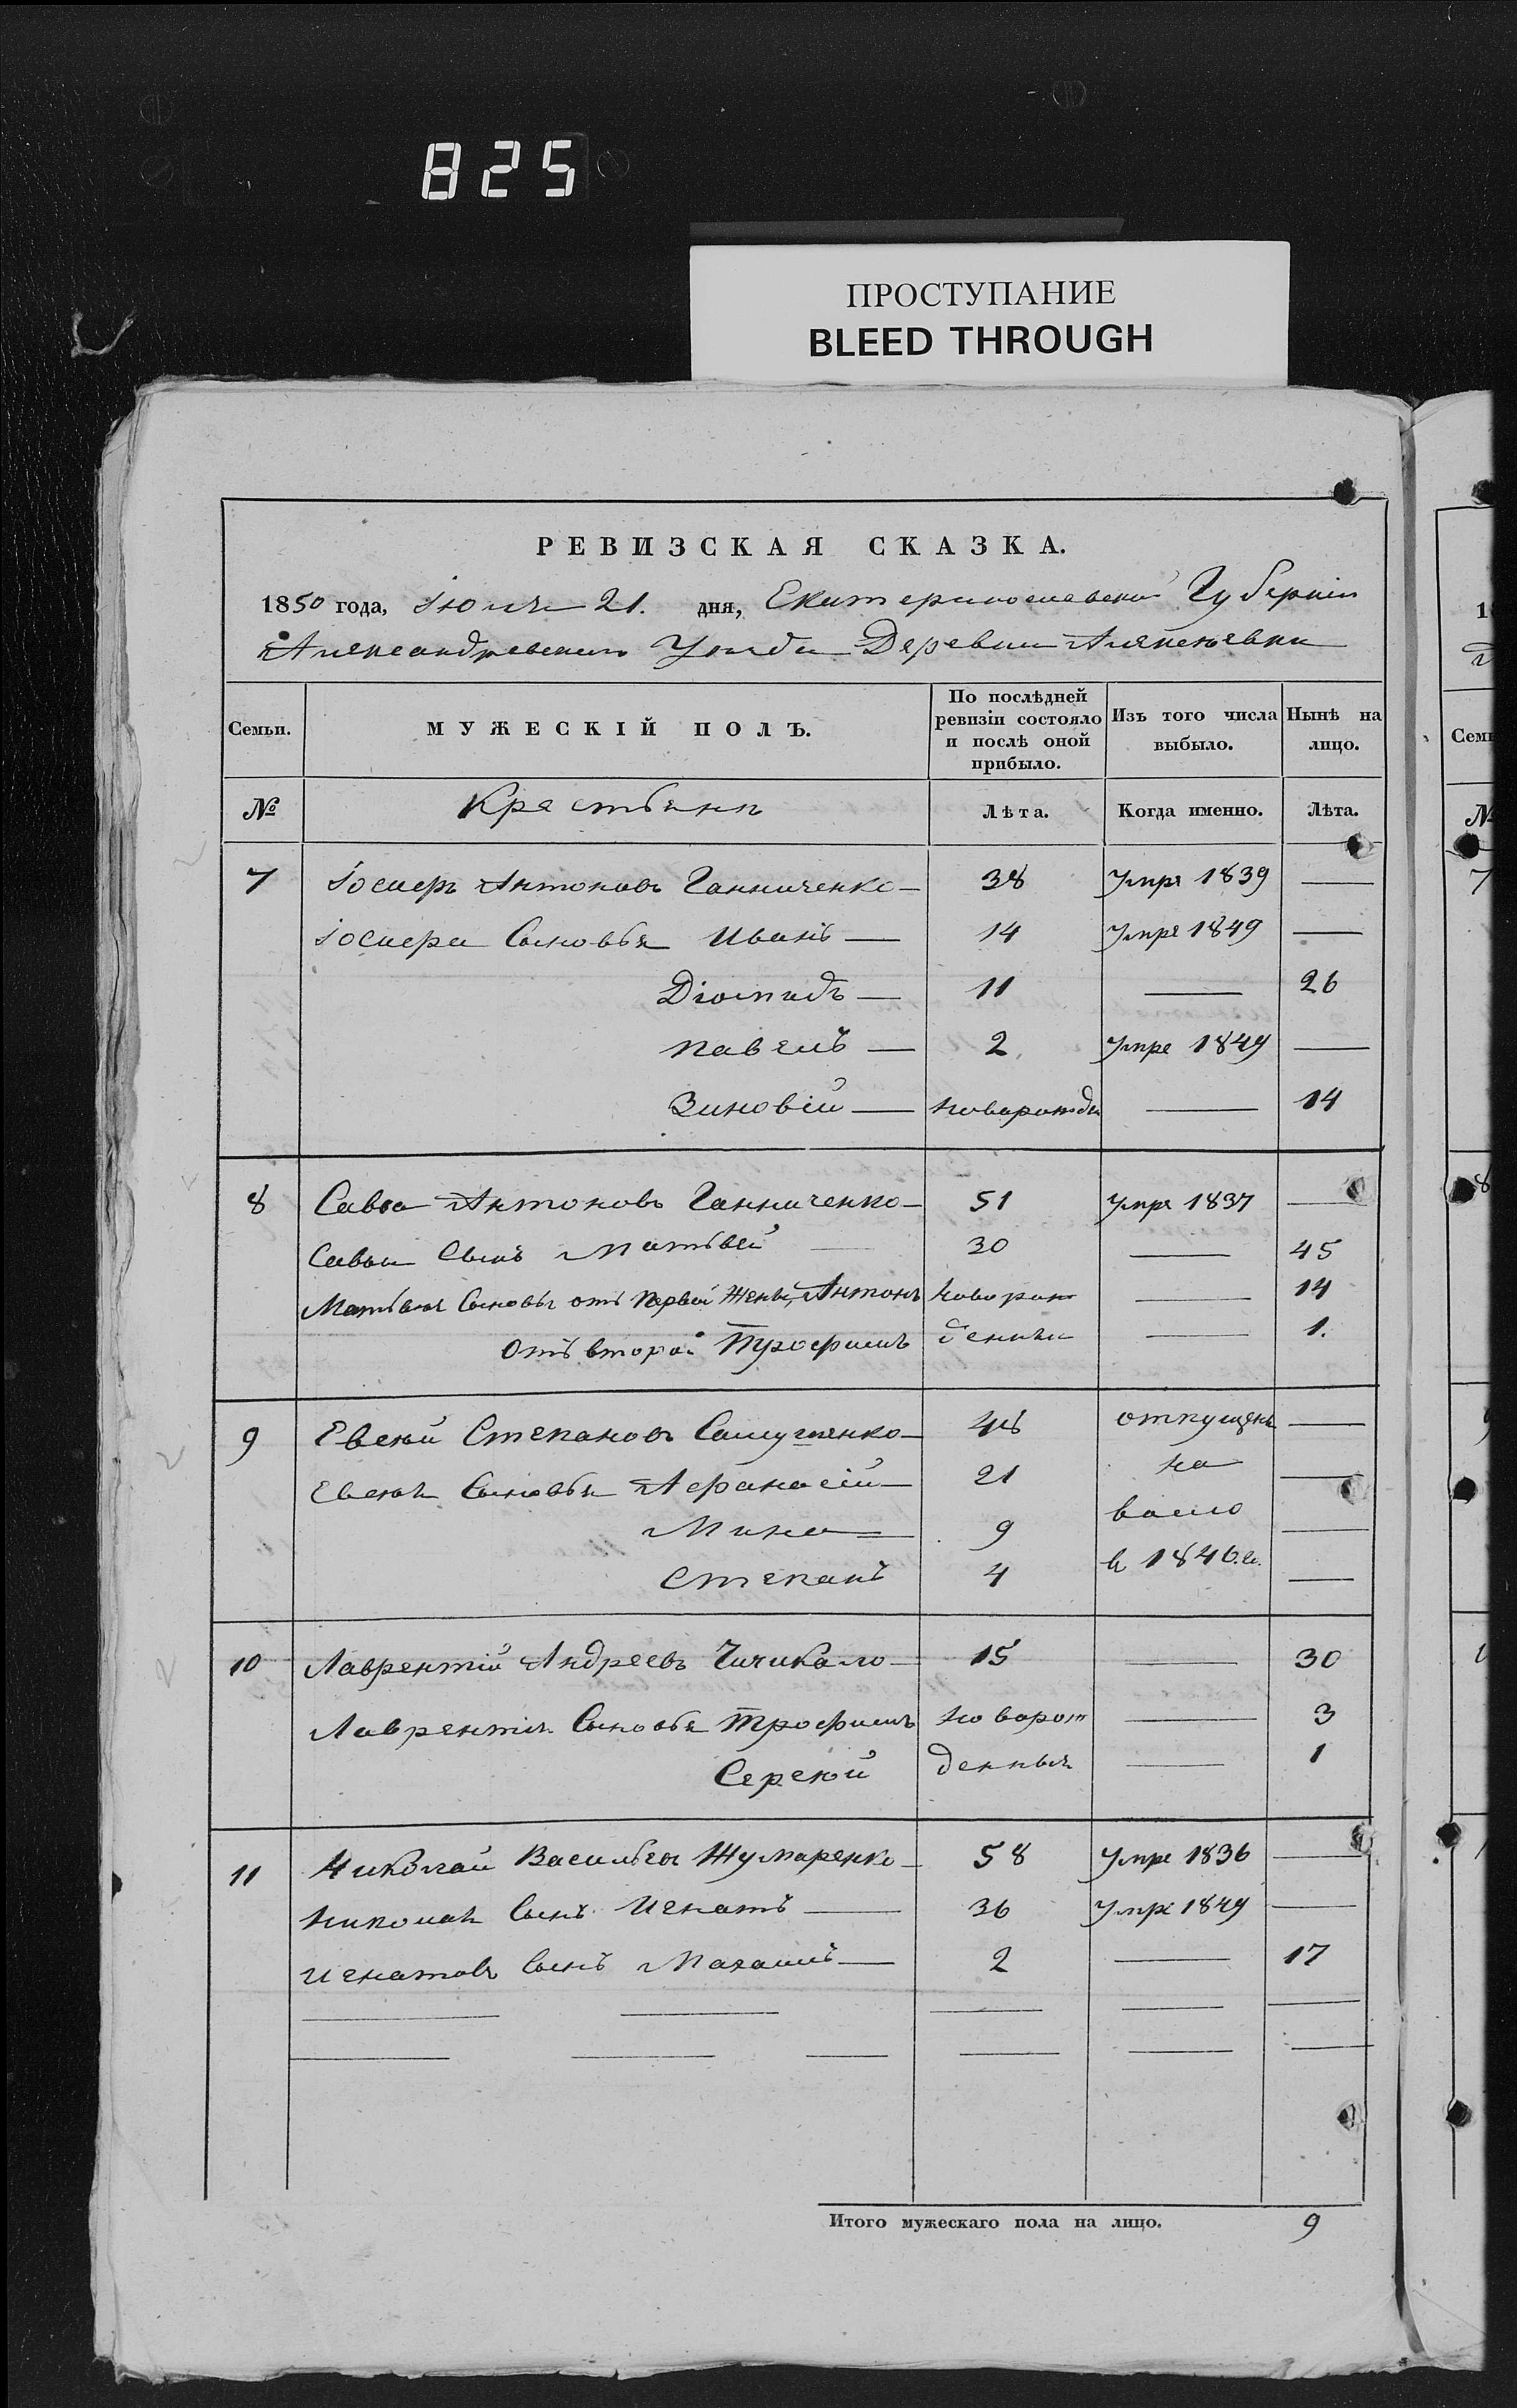 825
ПРОСТУПАНИЕ
BLEED THROUGH
РЕВИЗСКАЯ СКАЗКА.
1850 года, Іюля 21. дня, Екатеринославской Губерніи
Александровскаго Уезда Деревни Алексеевки
Семьи. МУЖЕСКІЙ ПОЛЪ. По послѣдней ревизіи состояло и послѣ оной прибыло. Изъ того числа выбыло. Нынѣ на лицо.
№ Крестьянъ Лѣта. Когда именно. Лѣта.
7 Іосифъ Антоновъ Ганниченко 38 Умре 1839 —
Іосифа Сыновья Иванъ — 14 Умре 1849 —
Діомидъ — 11 — 26
Павелъ — 2 Умре 1849 —
Зиновій — новорожде — 14
8 Савва Антоновъ Ганниченко 51 умре 1837 —
Саввы Сынъ Матвей 30 — 45
Матвея Сыновья отъ Первой Жены, Антонъ новорож — 14
Отъ второй Трофимъ денные — 1.
9 Евсей Степановъ 46 отпущены —
Евсея Сыновья Афанасій 21 на —
Мина 9 волю —
Степанъ 4 в 1846.г. —
10 Лаврентій Андреевъ Чичикало 15 — 30
Лаврентія Сыновья Трофимъ новорож — 3
Сергей денныя — 1
11 Николай Васильевъ 58 Умре 1836 —
Николая Сынъ Игнатъ — 36 Умре 1849 —
Игнатовъ Сынъ — 2 — 17
Итого мужескаго пола на лицо. 9